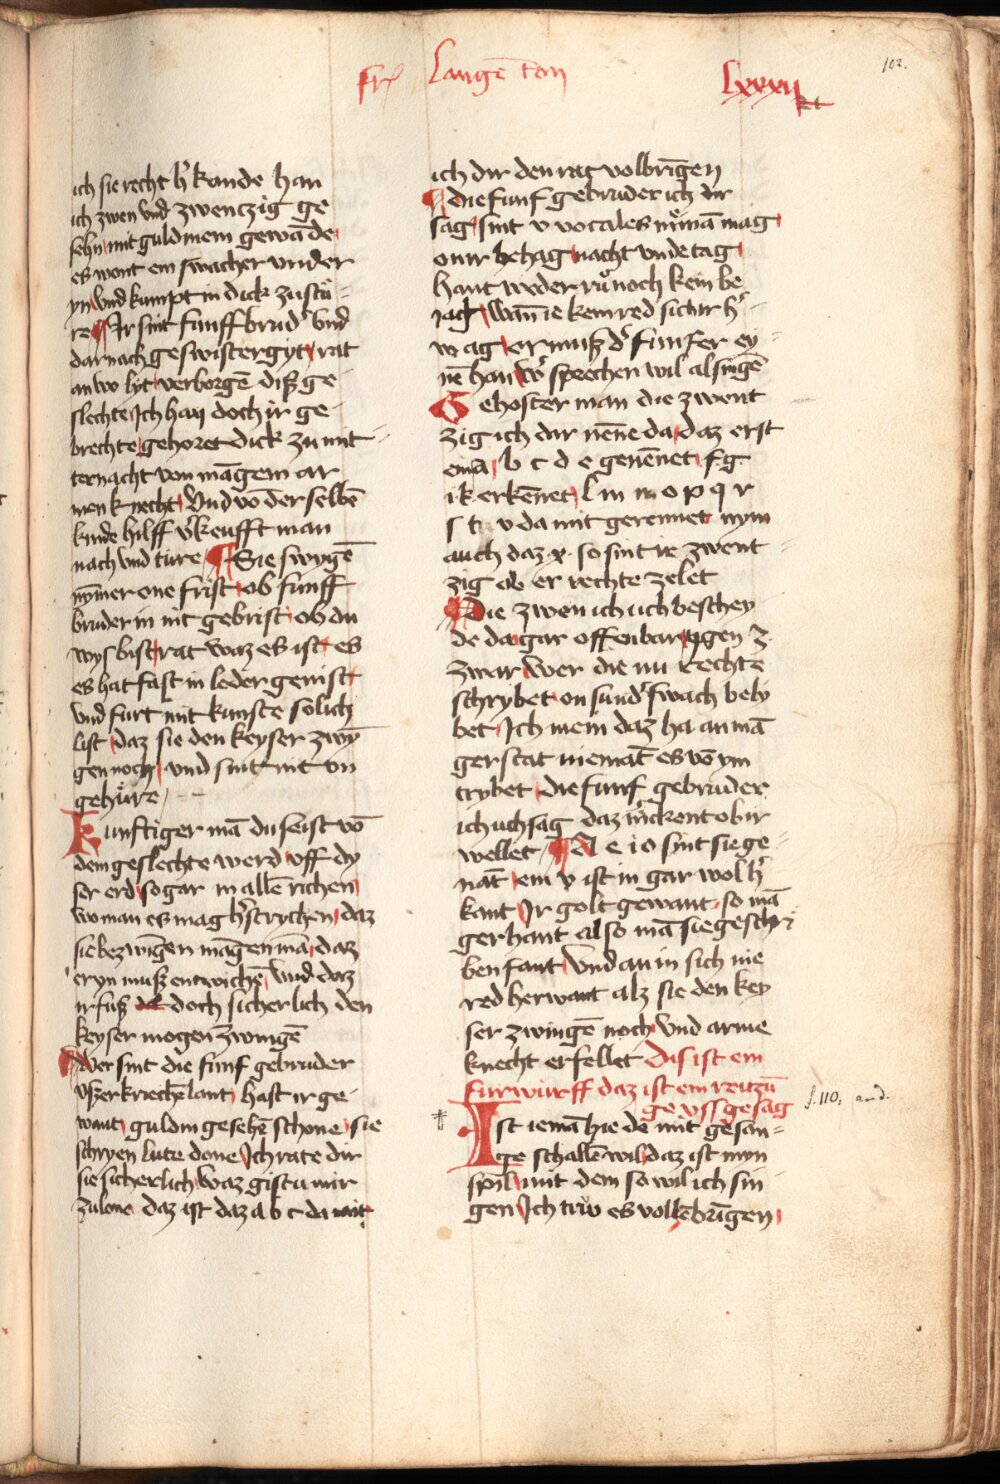 Fr͛ Langē ton
lxxxij
102.
ich sie recht h͛ kande han
ich zwen vnd zwenczig ge
sehn mit guldinem gewāde
es wont ein swacher vnder
yn vnd kumpt in dick zu stü-
re Ir sint funff brud͛ vnd
darnach geswistergyt rat
an wo lyt verborgē disz ge-
slechte Ich han doch ir ge-
brechte gehoret dick zu mit-
ternacht von māgem ar
men knecht Vnd vo der selbē
kinde hilff v͛keufft man
nach vnd türe Sie swygē
nȳmer one frist ob funff
bruder in nit gebrist ob du
wys bist rat waz es ist es
es hat fast in leder genist
vnd furt mit kunste solich
list daz sie den keyser zwȳ
gen noch vnd sint nit vn
gehüre
Kunftiger mā du seist vō
dem geslechte werd vff dy
ser erd so gar in allē richen
wo man es mag h͛strychen daz
sie bezwīgen māgen mā daz
er yn musz entwichē vnd daz
ir fusz doch sicherlich den
keyser mogen zwingē
Wer sint die funf gebruder
vszer kriechēlant hast ir ge-
want guldin gesehē schone sie
schryen lute done Ich rate dir
sie sicherlich waz gistu mir
zu lone daz ist daz a b c da mit
ich dir den rat volbrīgen
die funf gebruder ich dir
sag sint v vocales nȳmā mag
on ir behag nacht vnde tag
hant weder ru noch kein be
jag wān ie kein red sich ir h͛-
w ag er musz d͛ funfer ey-
nē han w͛ sprechen wil al singē
Gehoster man die zwent
zig ich dir nēne da daz erst
ein a b c d e genēnet f g
i k erkēnet l m n o p q r
s t v da mit gerennet nym
auch daz x so sint ir zwent-
zig ob er rechte zelet
Die zwen ich uch beschey
de da gar offenbar gen z
zwar wer die nu rechte
schrybet on sund͛ swach bely
bet Ich mein daz ha an mā
ger stat niemāt es vō ym
trybet die funf gebruder
ich uch sag daz m͛ckent ob ir
wellet A e i o sint sie ge-
nāt ein v ist in gar wol h͛
kant Ir golt gewant so mā
ger hant also mā sie geschr͛
ben fant vnd an in sich nie
red herwant alz sie den key
ser zwingē noch vnd arme
knecht erfellet Dis ist ein
furwurff daz ist ein reitzū
ge vss gesag
f. 110, and.
Ist iemā hie dē mit gesan-
ge schallē wil daz ist myn
spil mit dem so wil ich sin
gen Ich trüw es vollēbrīgen